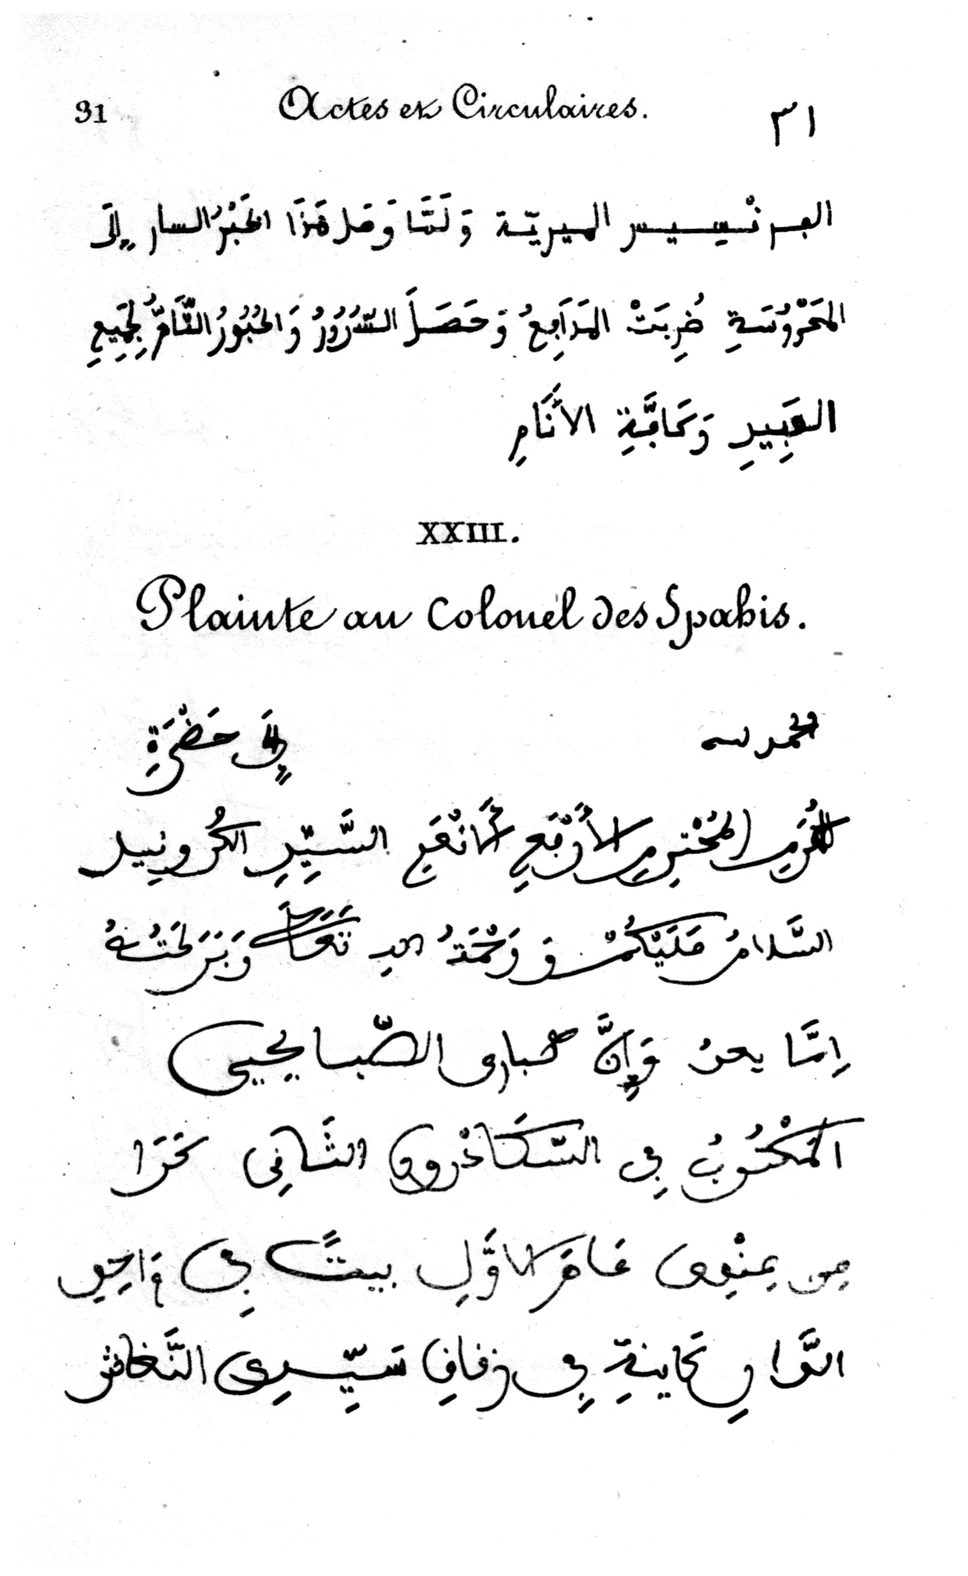 31 Actes et Circulaires. ٣١
البرنسيس الميريّة وَلَمَّا وَصَل هَذَا الخَبَرُ السار إِلَى
المَحْرُوسَةِ ضُرِبَتْ المَدَابِعُ وَحَصَلَ السُّرُورُ وَالحُبُورُ التَّامُّ لِجَمِيعِ
العَبِيدِ وَكَافَّةِ الأَنَامِ
XXIII.
Plainte au Colonel des Spahis.
الحمد لله إِلَى حَضْرَةِ
المُكَرَّمِ المُحْتَرَمِ الأَرْفَعِ الأَنْفَعِ السَّيِّدِ الكُرونِيل
السَّلامُ عَلَيْكُمْ وَرَحْمَةُ الله تَعَالَى وَبَرَكَتُهُ
اِمَّا بعدُ وَإِنَّ الصّبايحي
المَكْتُوبُ فِي السّكَادْرون الثَّانِي كَرَا
مِن عِنْدِى عَامَ الأوَّلِ بيتًا فِي وَاحِدِ
الدَّار كَاينة فِي زنقة سَيِّدِى